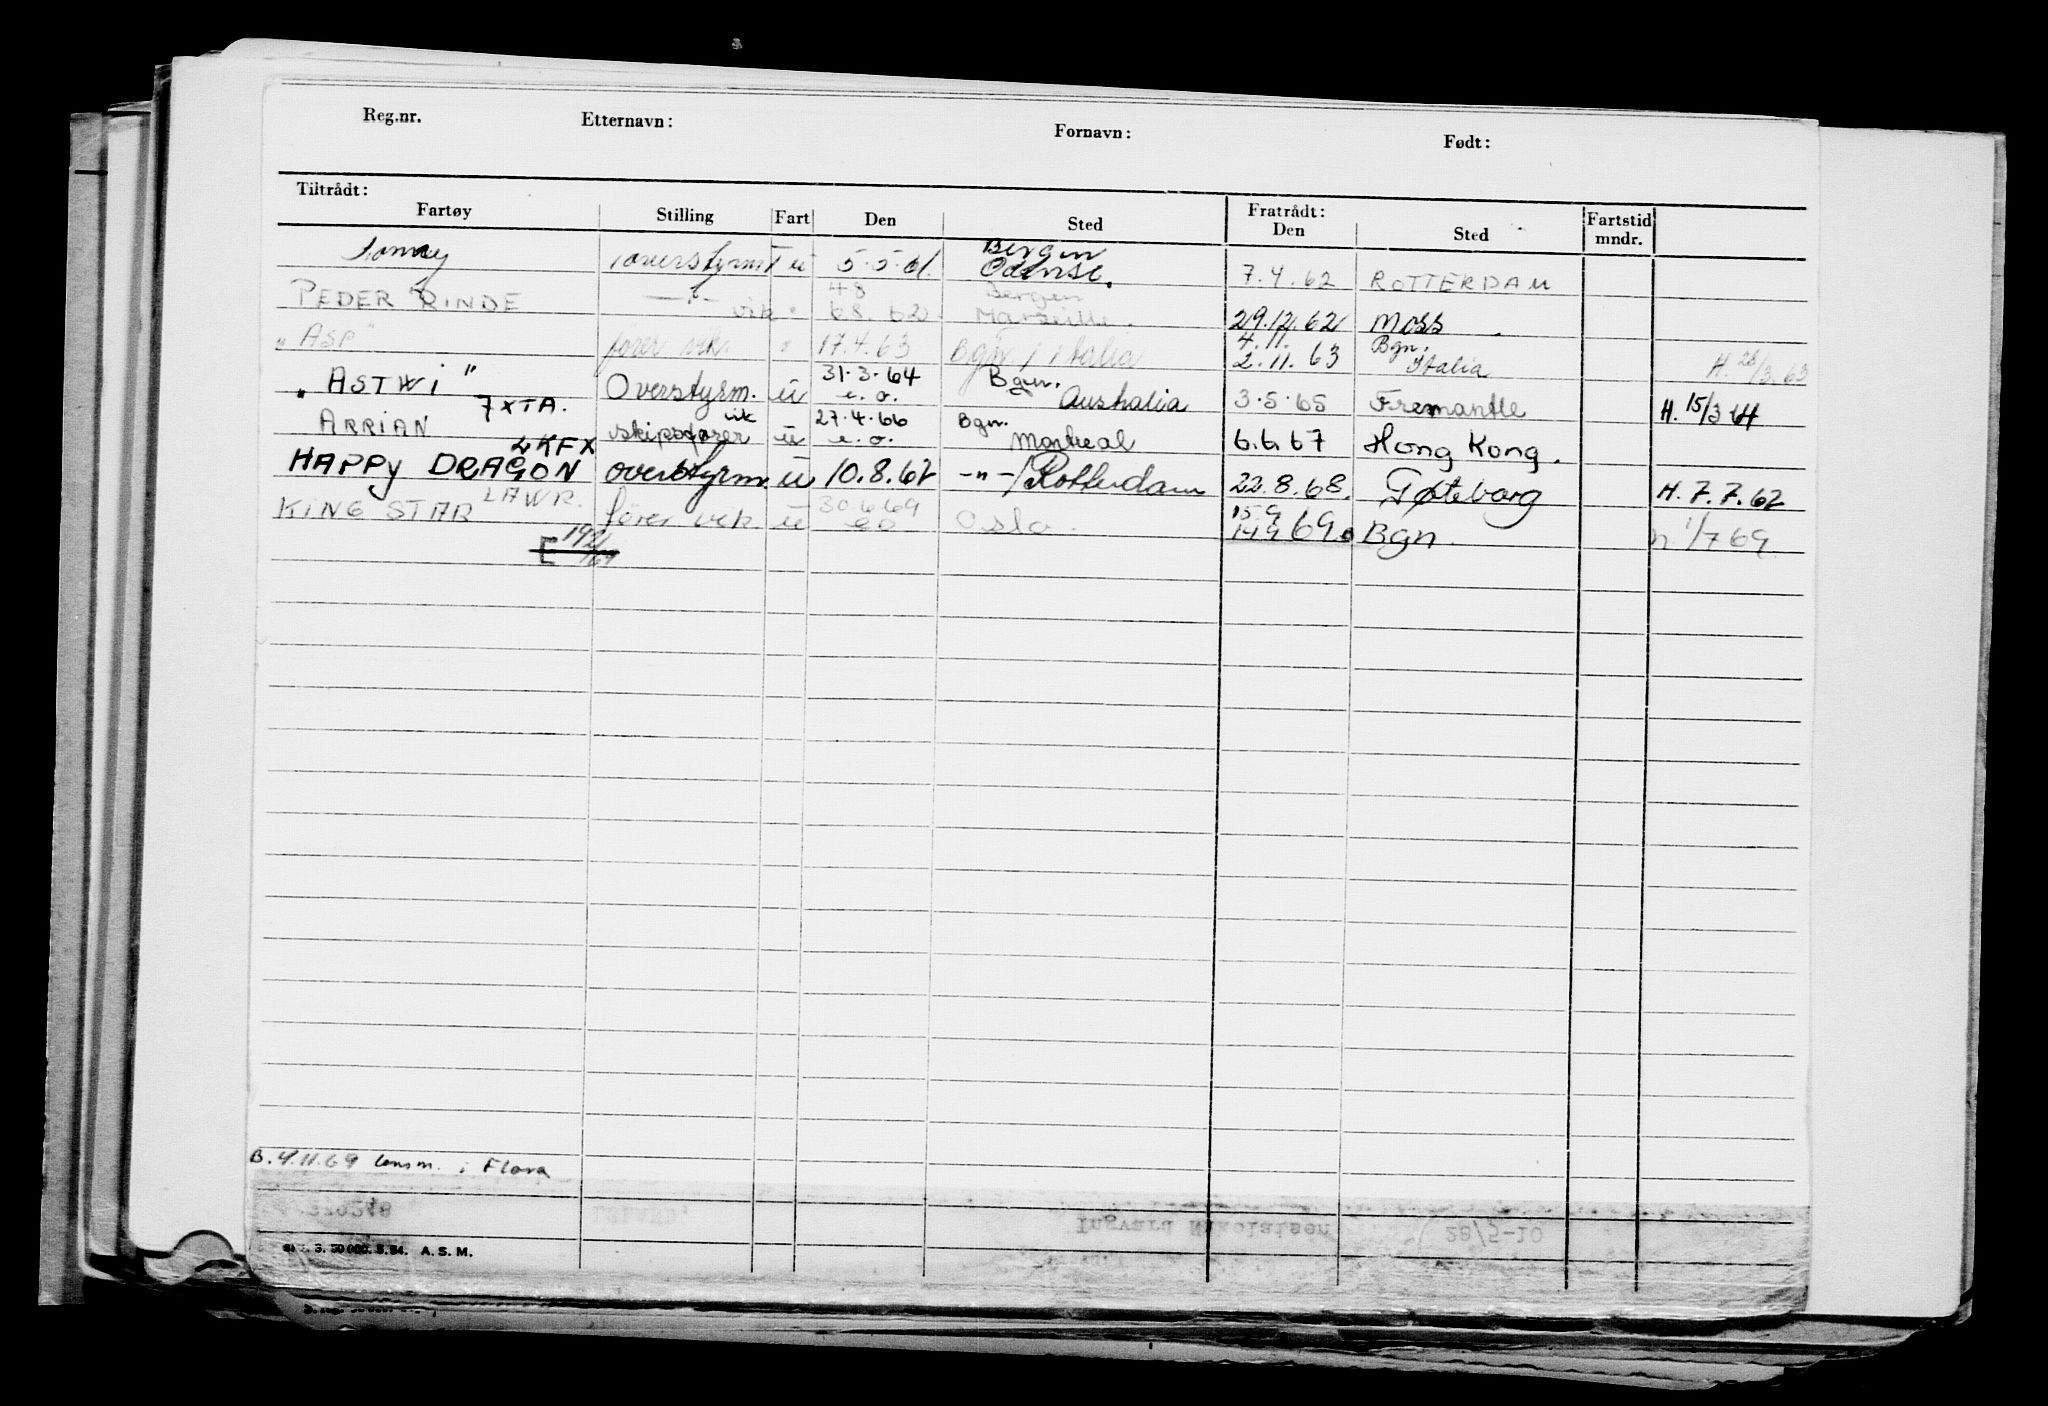 Reg.nr. Etternavn: Fornavn: Født:
Tiltrådt: Fratrådt:
Fartøy Stilling Fart Den Sted Den Sted Fartstid mndr.
overstyrm u 5.5.61. Bergen Odense. 7.4.62 ROTTERDAM
PEDER RINDE —"— vik " 4 8 6 8. 62 Bergen Marseille. 29.12.62 Moss
"ASP" fører vikr " 17.4.63 Bgn. / Italia 4.11. 2.11.63 Bgn. Italia H. 28/3.63
"ASTWI" Overstyrm. u 31.3.64 e.o. Bgn. Australia 3.5.65 Fremantle H. 15/3 64
7XTA.
ARRIAN skipsfører vik u 27.4.66 e.o. Bgn. Montreal 6.6.67 Hong Kong.
LKFX
HAPPY DRAGON overstyrm. u 10.8.67 -"-/Rotterdam 22.8.68. Gøteborg H.7.7.67
KING STAR LAWR. fører vik. u 30.6.69 eo Oslo. 15.9 14.9 69. Bgn. H 1/7 69.
B. 4.11.69 lensm. i Flora
S. 50 000. 5.54. A. S. M.
270248
Ingvard Nikolaisen
28/5-10